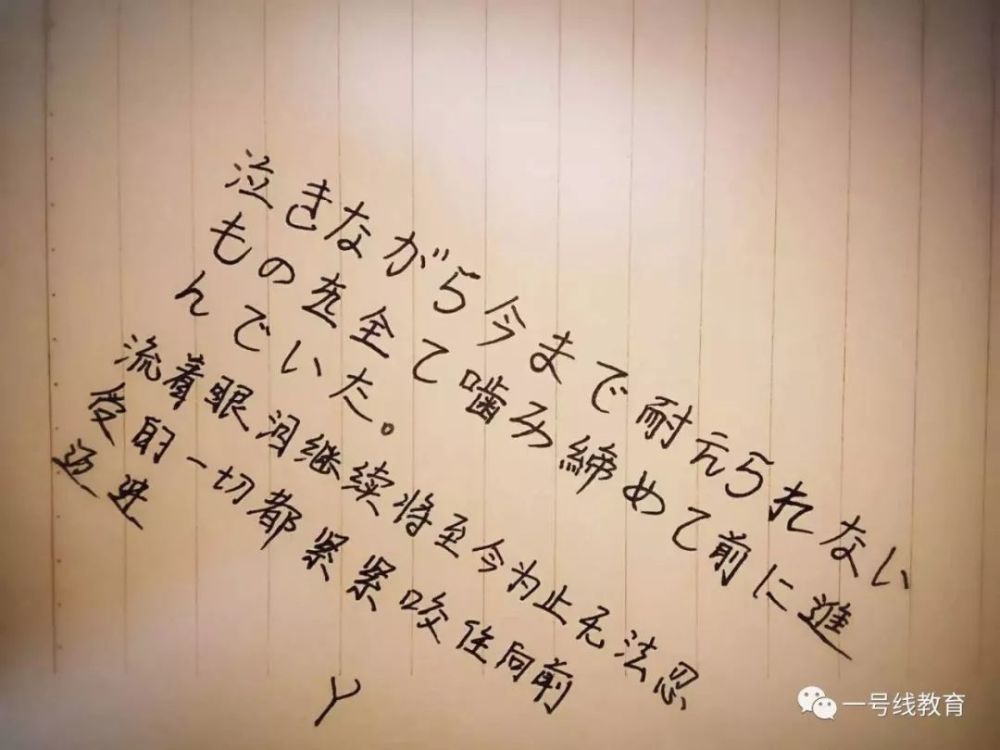 泣きながら今まで耐えられない
ものを全て噛み締めて前に進
んでいた。
流着眼泪继续将至今为止无法忍
受的一切都紧紧咬住向前
迈进
Y
一号线教育